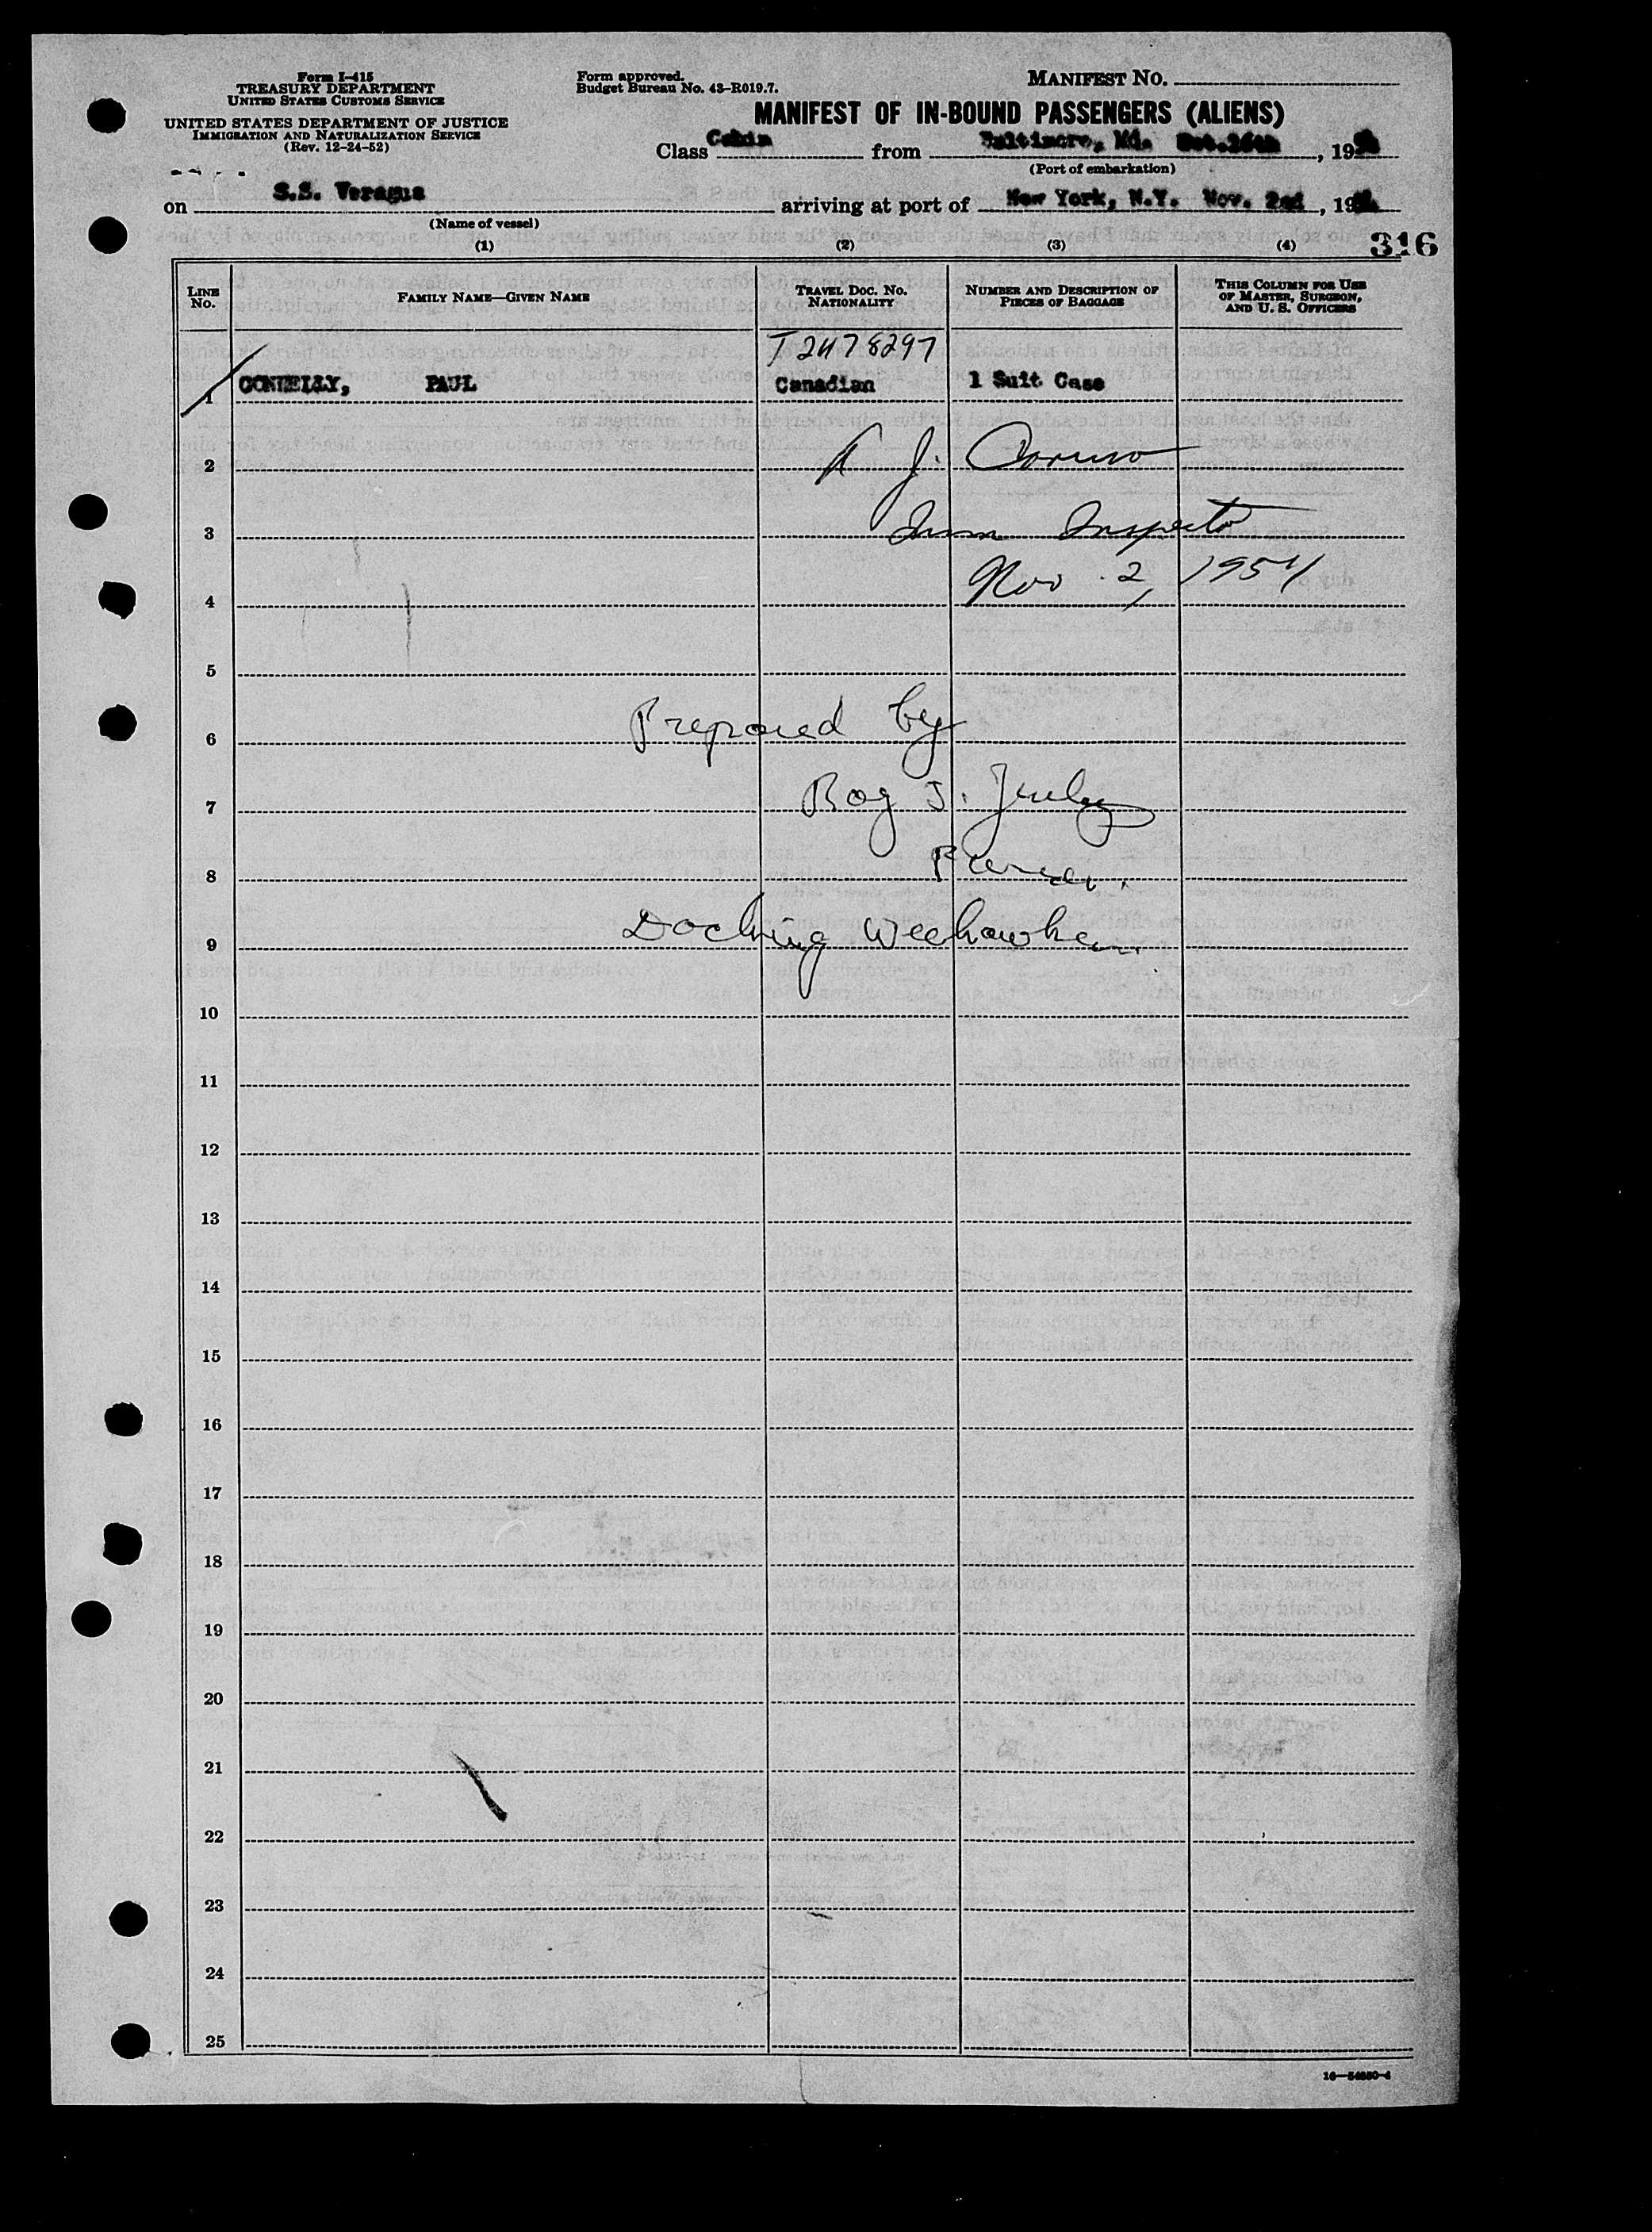 Form I-415
TREASURY DEPARTMENT
UNITED STATES CUSTOMS SERVICE
UNITED STATES DEPARTMENT OF JUSTICE
IMMIGRATION AND NATURALIZATION SERVICE
(Rev. 12-24-52)
Form approved.
Budget Bureau No. 43-R019.7.
MANIFEST NO.
MANIFEST OF IN-BOUND PASSENGERS (ALIENS)
Class Cabin from Baltimore, Md. Oct. , 1954
(Port of embarkation)
on S.S. Veragua arriving at port of New York, N.Y. Nov. 2nd , 1954
(Name of vessel)
(1) (2) (3) (4) 316
LINE No. FAMILY NAME—GIVEN NAME TRAVEL DOC. NO. NATIONALITY NUMBER AND DESCRIPTION OF PIECES OF BAGGAGE THIS COLUMN FOR USE OF MASTER, SURGEON, AND U. S. OFFICERS
1 CONNELLY, PAUL Canadian 1 Suit Case
2 J. Caruso
3 Imm Inspector
4 Nov. 2, 1954
5
6 Prepared by
7 Roy J.
8 Purser.
9 Docking Weehawken.
10
11
12
13
14
15
16
17
18
19
20
21
22
23
24
25